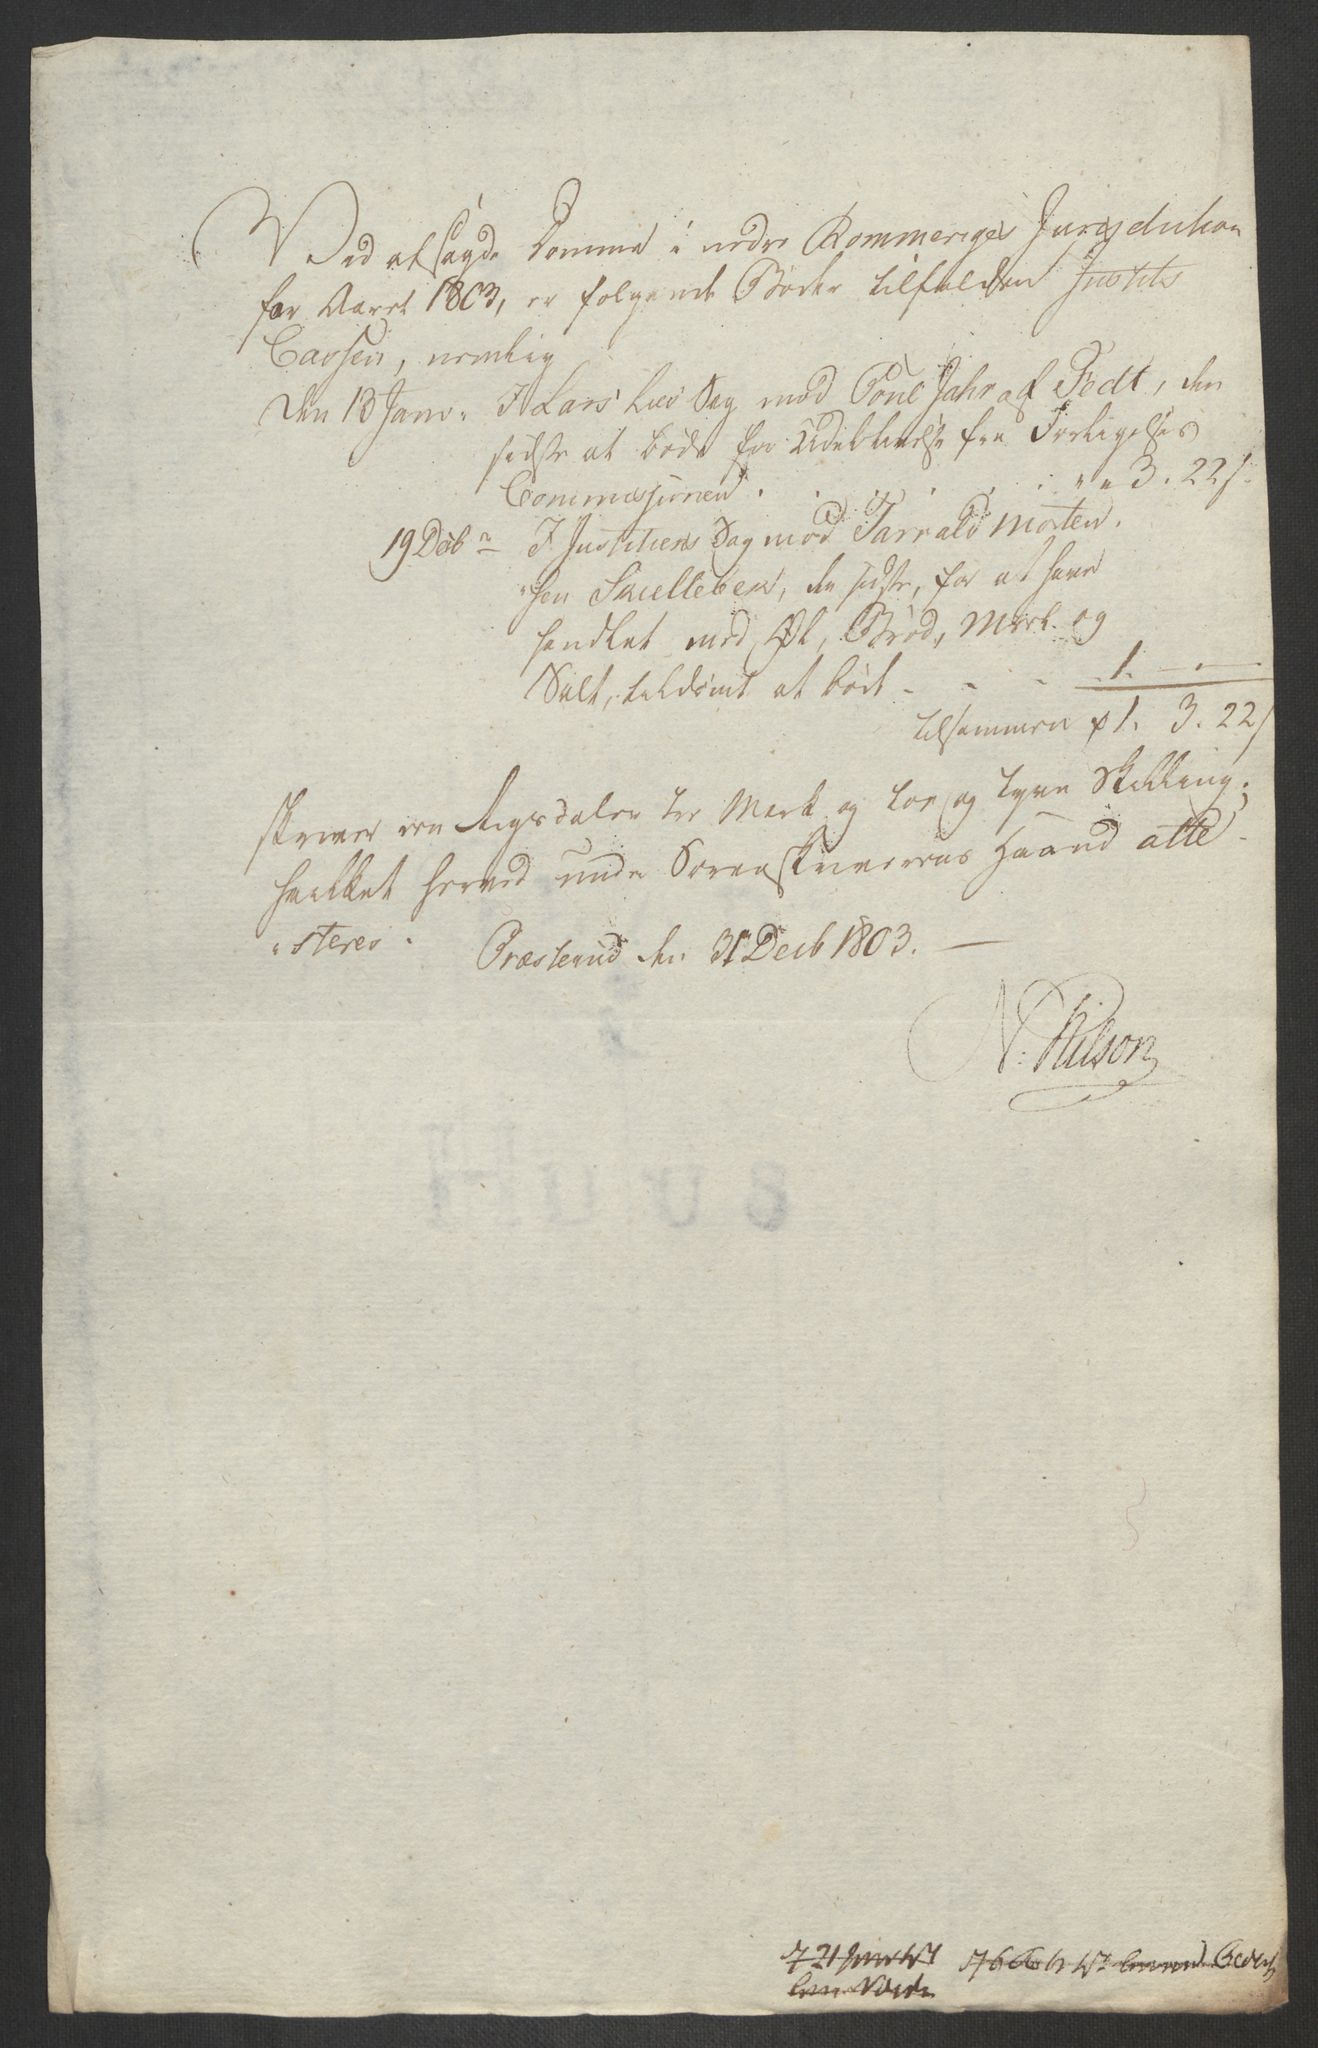 Ved afsagde Domme i nedre Rommeriges Jurisdiction
for Aaret 1803, er følgende Bøder tilfalden Justits
Cassen, nemlig
Den 13 Janv. I Lars Lies Sag mod Poul Jahr af Fedt, den
sidste at bøde for Udeblivelse fra Forligelses
Commissionen . . . . . . " " 3. 22 s.
19 Decbr I Justitiens Sag mod Tarrald Morten-
"sen Skielleben, den sidste, for at have
handlet med Øl, Brød, Mæl og
Salt, tildømt at bøde - - - 1. - -
tilsammen 1. 3. 22 s
skriver een Rigsdaler tre Mark og toe og tyve Skilling;
hvilket herved under Sorenskriverens Haand atte-
"steres. Præsterud den 31 Decb 1803.
N: Nilson